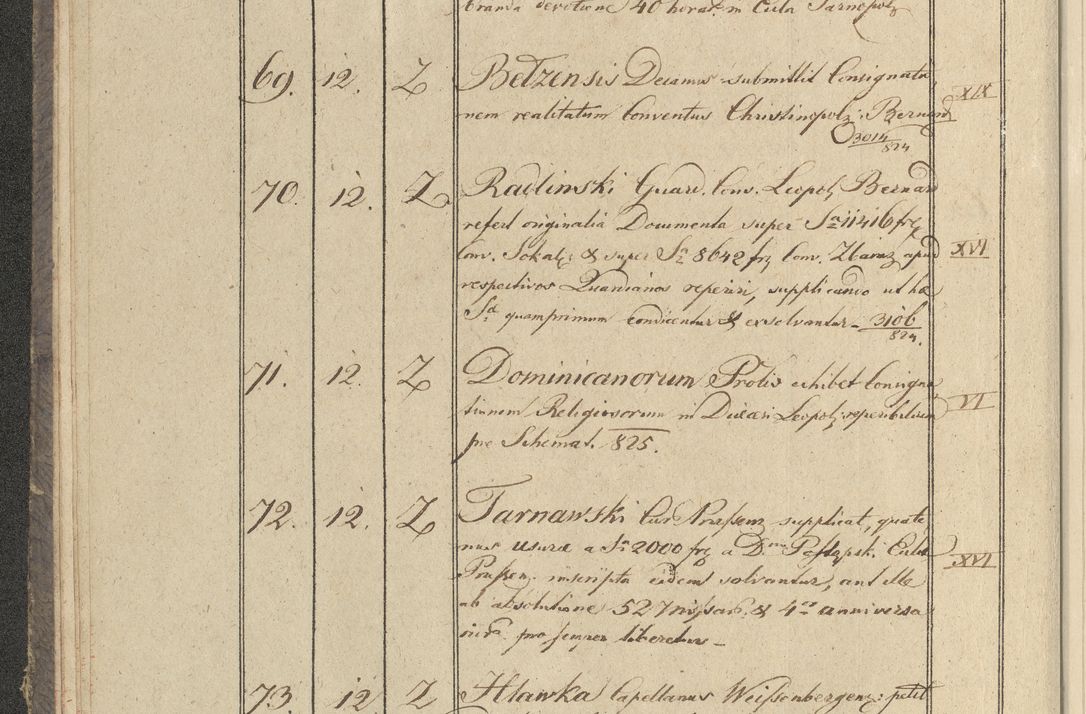 branda devotione 40 horar. in Ecla Tarnopol
69. 12. Z Belzensis Decanus submittit Consignatio
nem realitatum Conventus Christinopol: Bernard XIX
3014
824
70. 12. Z Radlinski Guard. Conv. Leopol. Bernard
refert originalia Documenta super Sa 11416 fr
Conv. Sokal: & super Sa 8642 fr Conv. Zbaraz apud XVI
respectivos reperiri, supplicando ut hæ
quamprimum condicentur & exsolvantur – 3106
824.
71. 12. Z Dominicanorum Prolis exhibet Consigna
tionem Religiosorum in Diæcesi Leopol: reperibilium VI
pro Schemat. 825.
72. 12. Z Tarnawski Cur supplicat, quate
nus usuræ a Sa 2000 fr a Dno Eccl
inscripta eidem solvantur, aut Ille XVI
ab absolutione 52 & 4or anniversa
pro semper liberetur –
73. 12 Z Hlawka Capellanus Weissenbergen: petit